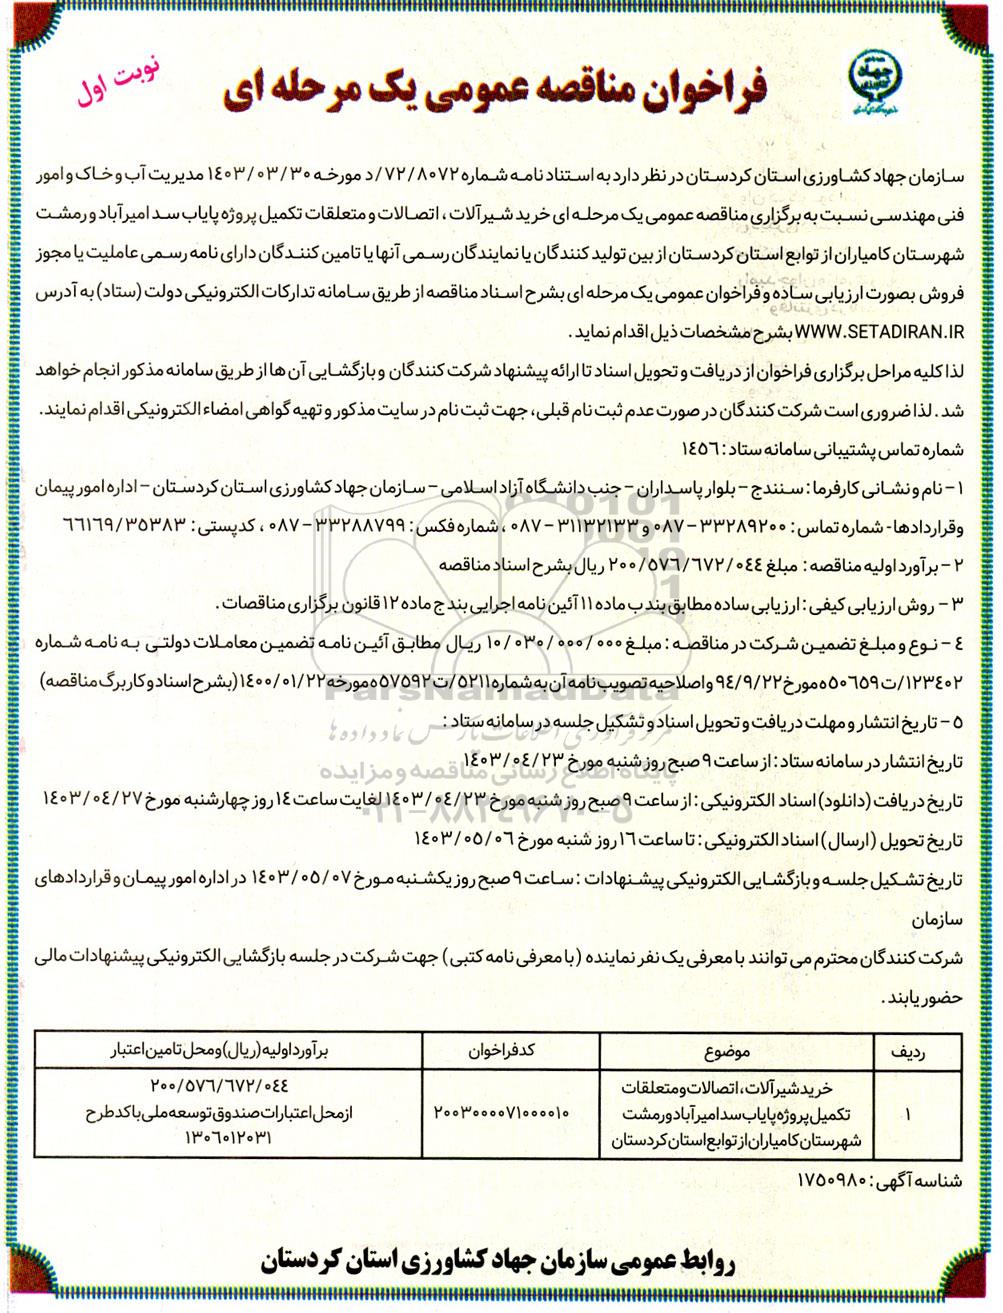 نوبت اول
فراخوان مناقصه عمومی یک مرحله ای
جهاد
سازمان جهاد کشاورزی استان کردستان در نظر دارد به استناد نامه شماره ۷۲/۸۰۷۲/د مورخه ۱۴۰۳/۰۳/۳۰ مدیریت آب و خاک و امور
فنی مهندسی نسبت به برگزاری مناقصه عمومی یک مرحله ای خرید شیرآلات، اتصالات و متعلقات تکمیل پروژه پایاب سد امیرآباد ورمشت
شهرستان کامیاران از توابع استان کردستان از بین تولید کنندگان یا نمایندگان رسمی آنها یا تامین کنندگان دارای نامه رسمی عاملیت یا مجوز
فروش بصورت ارزیابی ساده و فراخوان عمومی یک مرحله ای بشرح اسناد مناقصه از طریق سامانه تدارکات الکترونیکی دولت (ستاد) به آدرس
WWW.SETADIRAN.IR بشرح مشخصات ذیل اقدام نماید.
لذا کلیه مراحل برگزاری فراخوان از دریافت و تحویل اسناد تا ارائه پیشنهاد شرکت کنندگان و بازگشایی آن ها از طریق سامانه مذکور انجام خواهد
شد. لذا ضروری است شرکت کنندگان در صورت عدم ثبت نام قبلی، جهت ثبت نام در سایت مذکور و تهیه گواهی امضاء الکترونیکی اقدام نمایند.
شماره تماس پشتیبانی سامانه ستاد: ۱۴۵۶
۱- نام و نشانی کارفرما: سنندج - بلوار پاسداران - جنب دانشگاه آزاد اسلامی - سازمان جهاد کشاورزی استان کردستان - اداره امور پیمان
وقراردادها- شماره تماس: ۳۳۲۸۹۲۰۰-۰۸۷ و ۳۱۱۳۲۱۳۳-۰۸۷ ، شماره فکس: ۳۳۲۸۸۷۹۹-۰۸۷ ، کدپستی: ۶۶۱۶۹/۳۵۳۸۳
۲- برآورد اولیه مناقصه: مبلغ ۲۰۰/۵۷۶/۶۷۲/۰۴۴ ریال بشرح اسناد مناقصه
۳- روش ارزیابی کیفی: ارزیابی ساده مطابق بندب ماده ۱۱ آئین نامه اجرایی بند ج ماده ۱۲ قانون برگزاری مناقصات.
۴- نوع و مبلغ تضمین شرکت در مناقصه: مبلغ ۱۰/۰۳۰/۰۰۰/۰۰۰ ریال مطابق آئین نامه تضمین معاملات دولتی به نامه شماره
۱۲۳۴۰۲/ت۵۰۶۵۹ه مورخ ۹۴/۹/۲۲ و اصلاحیه تصویب نامه آن به شماره ۵۲۱۱/ت۵۷۵۹۲ه مورخه ۱۴۰۰/۰۱/۲۲ (بشرح اسناد و کاربرگ مناقصه)
۵- تاریخ انتشار و مهلت دریافت و تحویل اسناد و تشکیل جلسه در سامانه ستاد:
تاریخ انتشار در سامانه ستاد: از ساعت ۹ صبح روز شنبه مورخ ۱۴۰۳/۰۴/۲۳
تاریخ دریافت (دانلود) اسناد الکترونیکی: از ساعت ۹ صبح روز شنبه مورخ ۱۴۰۳/۰۴/۲۳ لغایت ساعت ۱۴ روز چهارشنبه مورخ ۱۴۰۳/۰۴/۲۷
تاریخ تحویل (ارسال) اسناد الکترونیکی: تا ساعت ۱۶ روز شنبه مورخ ۱۴۰۳/۰۵/۰۶
تاریخ تشکیل جلسه و بازگشایی الکترونیکی پیشنهادات: ساعت ۹ صبح روز یکشنبه مورخ ۱۴۰۳/۰۵/۰۷ در اداره امور پیمان و قراردادهای
سازمان
شرکت کنندگان محترم می توانند با معرفی یک نفر نماینده (با معرفی نامه کتبی) جهت شرکت در جلسه بازگشایی الکترونیکی پیشنهادات مالی
حضور یابند.
ردیف موضوع کدفراخوان برآورد اولیه (ریال) و محل تامین اعتبار
۱ خرید شیرآلات، اتصالات و متعلقات تکمیل پروژه پایاب سد امیرآباد ورمشت شهرستان کامیاران از توابع استان کردستان ۲۰۰۳۰۰۰۰۷۱۰۰۰۰۱۰ ۲۰۰/۵۷۶/۶۷۲/۰۴۴ از محل اعتبارات صندوق توسعه ملی با کد طرح ۱۳۰۶۰۱۲۰۳۱
شناسه آگهی: ۱۷۵۰۹۸۰
روابط عمومی سازمان جهاد کشاورزی استان کردستان
ParsNamadData
مرکز فرآوری اطلاعات پارس نماد داده ها
پایگاه اطلاع رسانی مناقصه و مزایده
۰۲۱-۸۸۳۴۹۶۷۰-۵